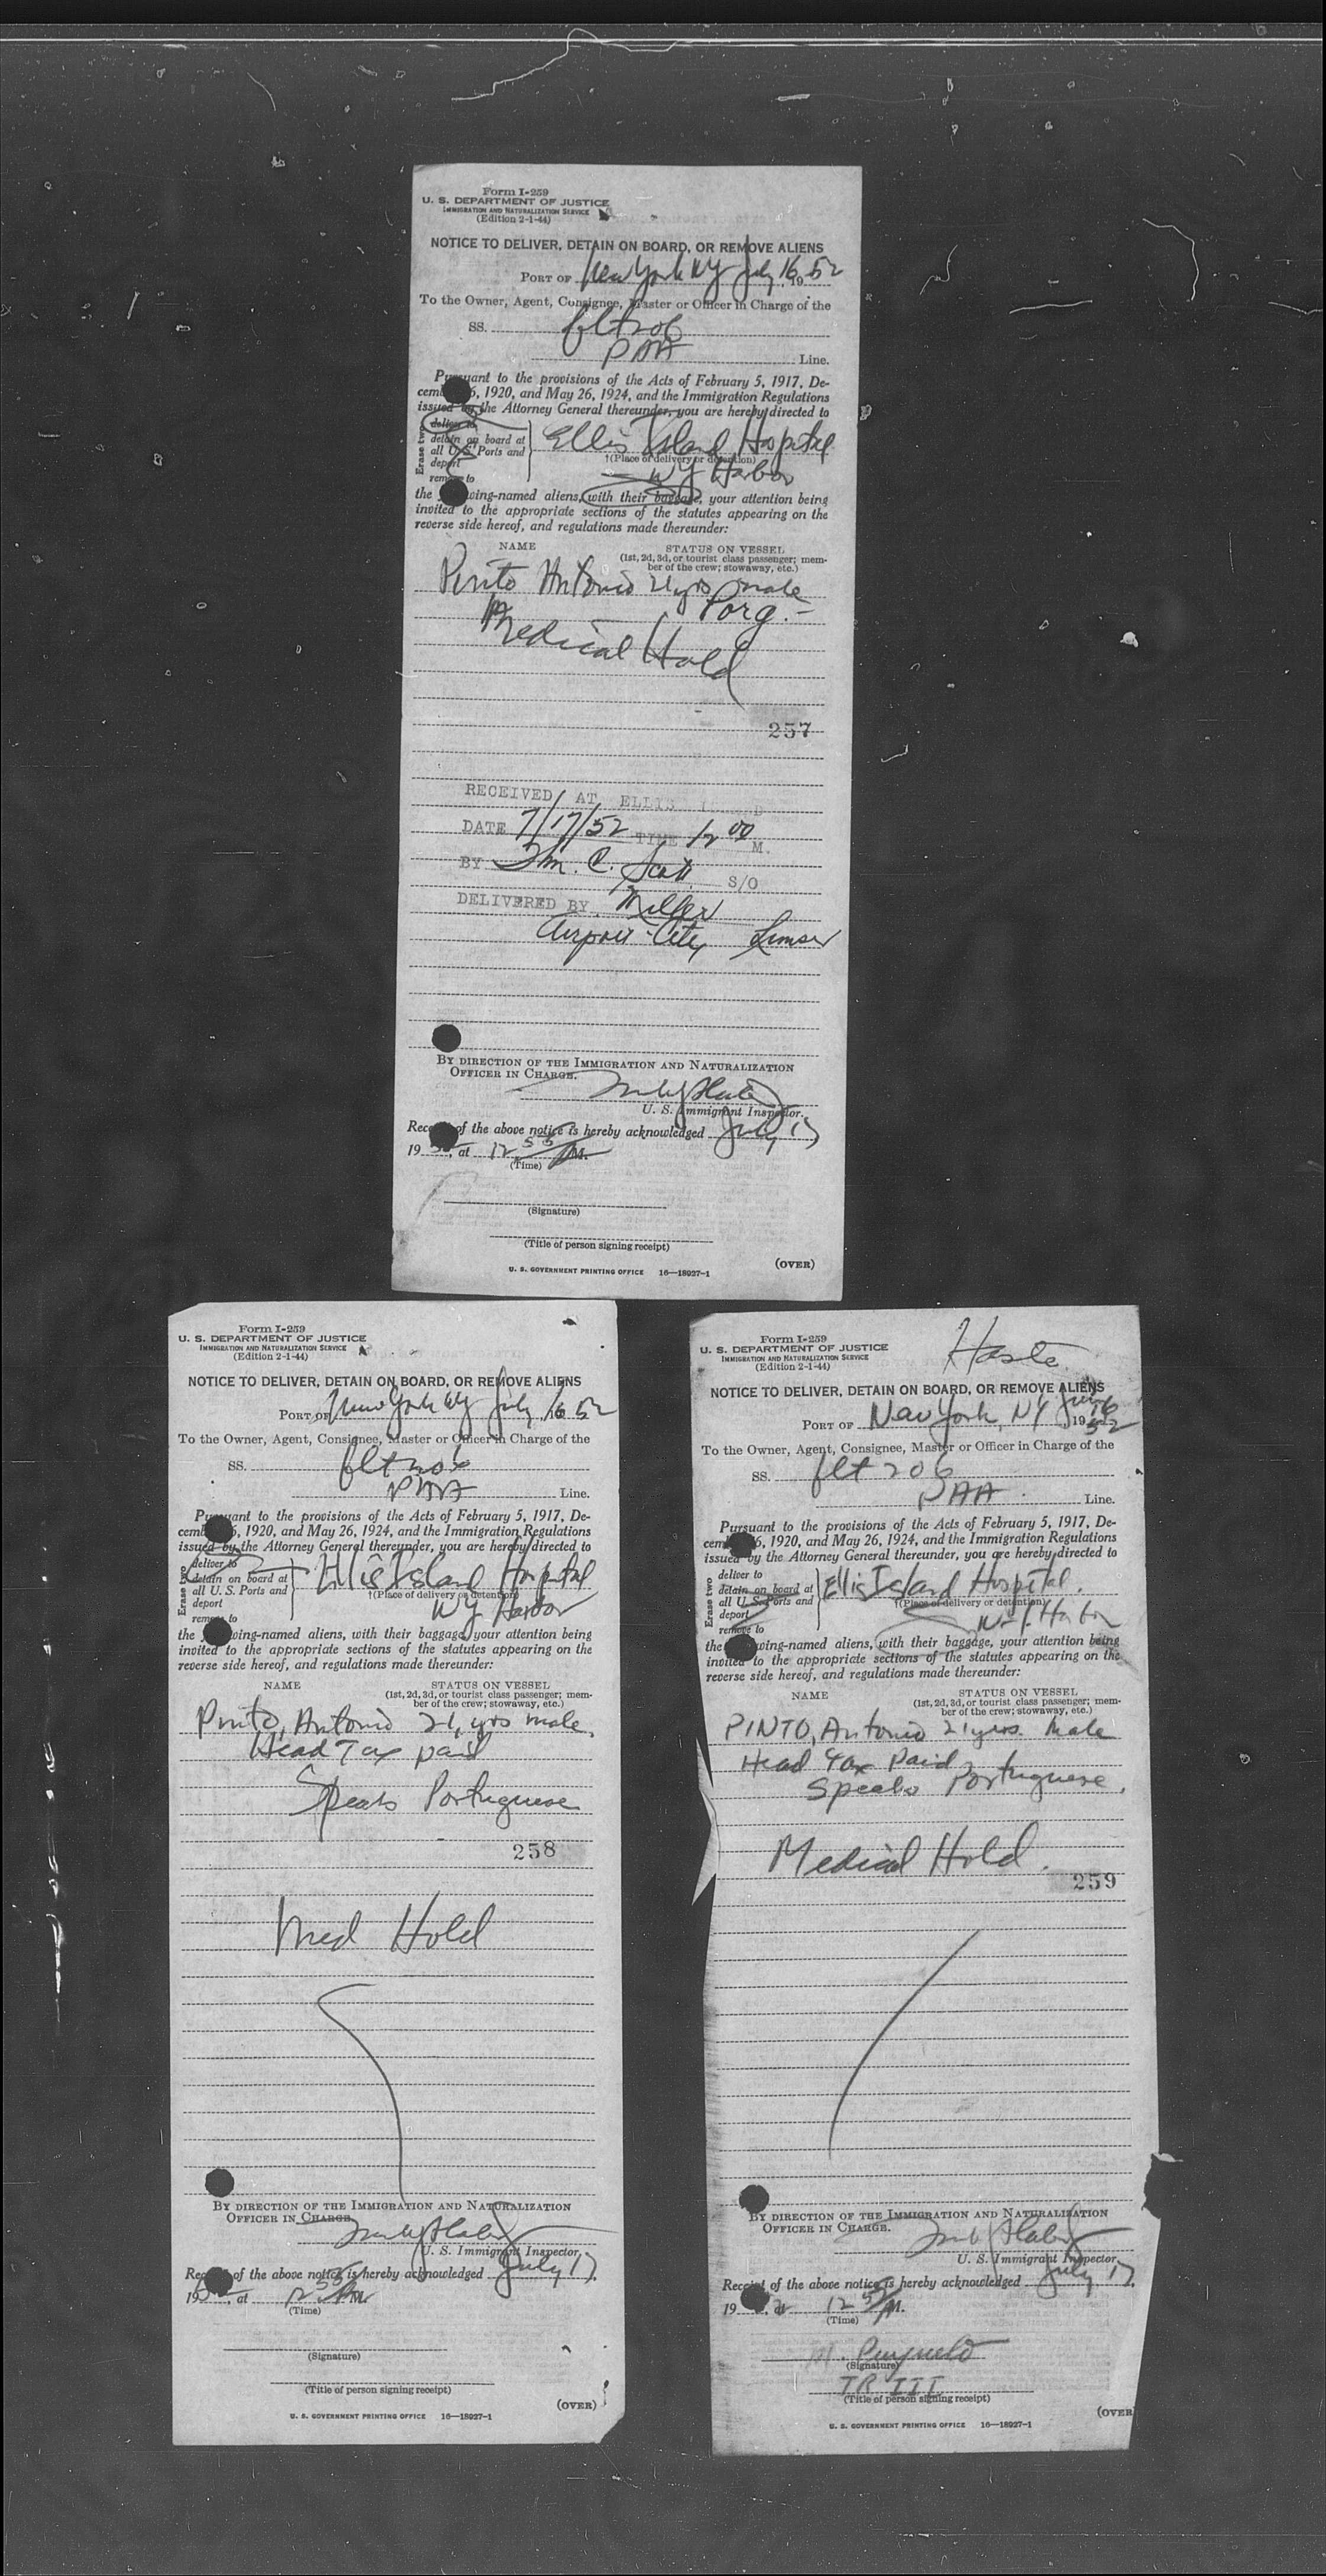 Form I-259
U. S. DEPARTMENT OF JUSTICE
IMMIGRATION AND NATURALIZATION SERVICE
(Edition 2-1-44)
NOTICE TO DELIVER, DETAIN ON BOARD, OR REMOVE ALIENS
PORT OF New York NY July 16, 1952
To the Owner, Agent, Consignee, Master or Officer in Charge of the
SS. flt 206
PAA Line.
Pursuant to the provisions of the Acts of February 5, 1917, De-
cem 6, 1920, and May 26, 1924, and the Immigration Regulations
issued by the Attorney General thereunder, you are hereby directed to
Erase two
deliver to
detain on board at
all U. S. Ports and
deport
remove to
Ellis Island Hospital
†(Place of delivery or detention)
NY Harbor
the wing-named aliens, with their baggage, your attention being
invited to the appropriate sections of the statutes appearing on the
reverse side hereof, and regulations made thereunder:
NAME STATUS ON VESSEL
(1st, 2d, 3d, or tourist class passenger; mem-
ber of the crew; stowaway, etc.)
Pinto Antonio 21 yrs male
Porg.-
Medical Hold
257
RECEIVED AT ELLIS I D
DATE 7/17/52 TIME 12 00 M.
BY C. Scott S/O
DELIVERED BY Miller
Airport-City
BY DIRECTION OF THE IMMIGRATION AND NATURALIZATION
OFFICER IN CHARGE.
U. S. Immigrant Inspector.
Rece of the above notice is hereby acknowledged July 17
19 5 , at 12 55 M.
(Time)
(Signature)
(Title of person signing receipt)
(OVER)
U. S. GOVERNMENT PRINTING OFFICE 16—18927-1
Form I-259
U. S. DEPARTMENT OF JUSTICE
IMMIGRATION AND NATURALIZATION SERVICE
(Edition 2-1-44)
NOTICE TO DELIVER, DETAIN ON BOARD, OR REMOVE ALIENS
PORT OF New York NY July 16 52
To the Owner, Agent, Consignee, Master or Officer in Charge of the
SS. flt 206
PAA Line.
Pursuant to the provisions of the Acts of February 5, 1917, De-
cem 6, 1920, and May 26, 1924, and the Immigration Regulations
issued by the Attorney General thereunder, you are hereby directed to
Erase two
deliver to
detain on board at
all U. S. Ports and
deport
remove to
Ellis Island Hospital
†(Place of delivery or detention)
NY Harbor
the wing-named aliens, with their baggage, your attention being
invited to the appropriate sections of the statutes appearing on the
reverse side hereof, and regulations made thereunder:
NAME STATUS ON VESSEL
(1st, 2d, 3d, or tourist class passenger; mem-
ber of the crew; stowaway, etc.)
Pinto, Antonio 21, yrs male,
Head Tax paid
Speaks Portuguese
258
Med Hold
BY DIRECTION OF THE IMMIGRATION AND NATURALIZATION
OFFICER IN CHARGE
U. S. Immigrant Inspector.
Rec of the above notice is hereby acknowledged July 17,
195 , at 12 55 M.
(Time)
(Signature)
(Title of person signing receipt)
(OVER)
U. S. GOVERNMENT PRINTING OFFICE 16—18927-1
Haste
Form I-259
U. S. DEPARTMENT OF JUSTICE
IMMIGRATION AND NATURALIZATION SERVICE
(Edition 2-1-44)
NOTICE TO DELIVER, DETAIN ON BOARD, OR REMOVE ALIENS
PORT OF New York, NY July 16 1952
To the Owner, Agent, Consignee, Master or Officer in Charge of the
SS. flt 206
PAA Line.
Pursuant to the provisions of the Acts of February 5, 1917, De-
cem 6, 1920, and May 26, 1924, and the Immigration Regulations
issued by the Attorney General thereunder, you are hereby directed to
Erase two
deliver to
detain on board at
all U. S. Ports and
deport
remove to
Ellis Island Hospital.
†(Place of delivery or detention)
N.Y. Harbor
the wing-named aliens, with their baggage, your attention being
invited to the appropriate sections of the statutes appearing on the
reverse side hereof, and regulations made thereunder:
NAME STATUS ON VESSEL
(1st, 2d, 3d, or tourist class passenger; mem-
ber of the crew; stowaway, etc.)
PINTO, Antonio 21 yrs. Male
Head Tax Paid
Speaks Portuguese.
Medical Hold.
259
BY DIRECTION OF THE IMMIGRATION AND NATURALIZATION
OFFICER IN CHARGE.
U. S. Immigrant Inspector.
Receipt of the above notice is hereby acknowledged July 17,
19 2 12 55 M.
(Time)
(Signature)
TR III
(Title of person signing receipt)
(OVER
U. S. GOVERNMENT PRINTING OFFICE 16—18927-1